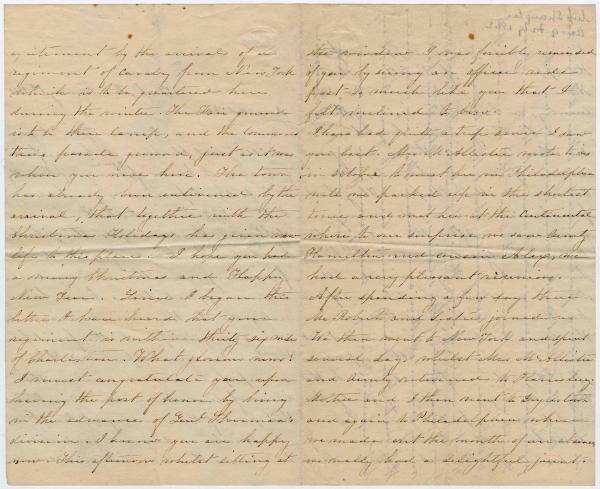 excitement by the arrival of a
regiment of Cavalry from New York
which is to be quartered here
during the winter. The Fair ground
is to be their camp, and the common
their parade ground, just as it was
when you were here. The town
has already been enlivened by the
arrival, that together with the
Christmas Holidays has given new
life to the place. I hope you had
a merry Christmas and Happy
New Year. Since I began this
letter I have heard that your
regiment is within thirty six miles
of Charleston. What glorious news!
I must congratulate you upon
having the post of honor by being
in the advance of Genl Sherman's
division. I know you are happy
now. This afternoon whilst sitting at
the window I was forcibly reminded
of you by seeing an officer ride
past so much like you that I
felt inclined to bow.
I have had quite a trip since I saw
you last. Mrs McAllister wrote to us
in to meet her in Philadelphia
with me packed up in the shortest
time, and met her at the Continental
where to our surprise we saw Aunty
Hamilton and cousin Alex, we
had a very pleasant evening.
After spending a few days there
Roberts and joined us
We then went to New York and spent
several days whilst Mrs McAllister
and Aunty returned to Harrisburg
Mother and I then went to Doylestown
and again to Philadelphia where
we made out the month of our absence
we really had a delightful